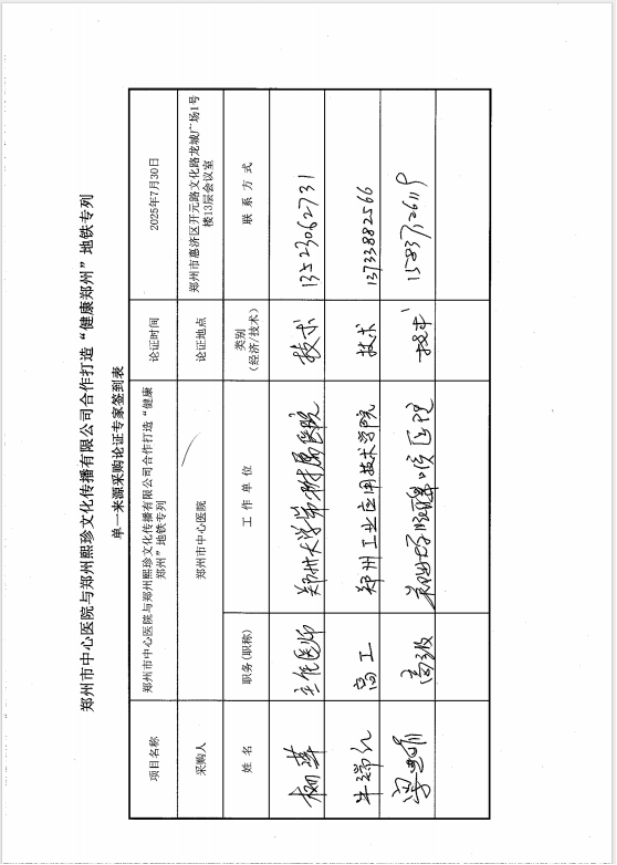 郑州市中心医院与郑州熙珍文化传播有限公司合作打造“健康郑州”地铁专列
单一来源采购论证专家签到表
项目名称 郑州市中心医院与郑州熙珍文化传播有限公司合作打造“健康
郑州”地铁专列 论证时间 2025年7月30日
采购人 郑州市中心医院 论证地点 郑州市惠济区开元路文化路龙城广场1号
楼13层会议室
姓 名 职务(职称) 工 作 单 位 类别
(经济/技术) 联 系 方 式
主任医师 郑州大学第 附属医院 技术 13523062731
牛瑞红 高工 郑州工业应用技术学院 技术 13733882566
高级 医院 技术 15837126119